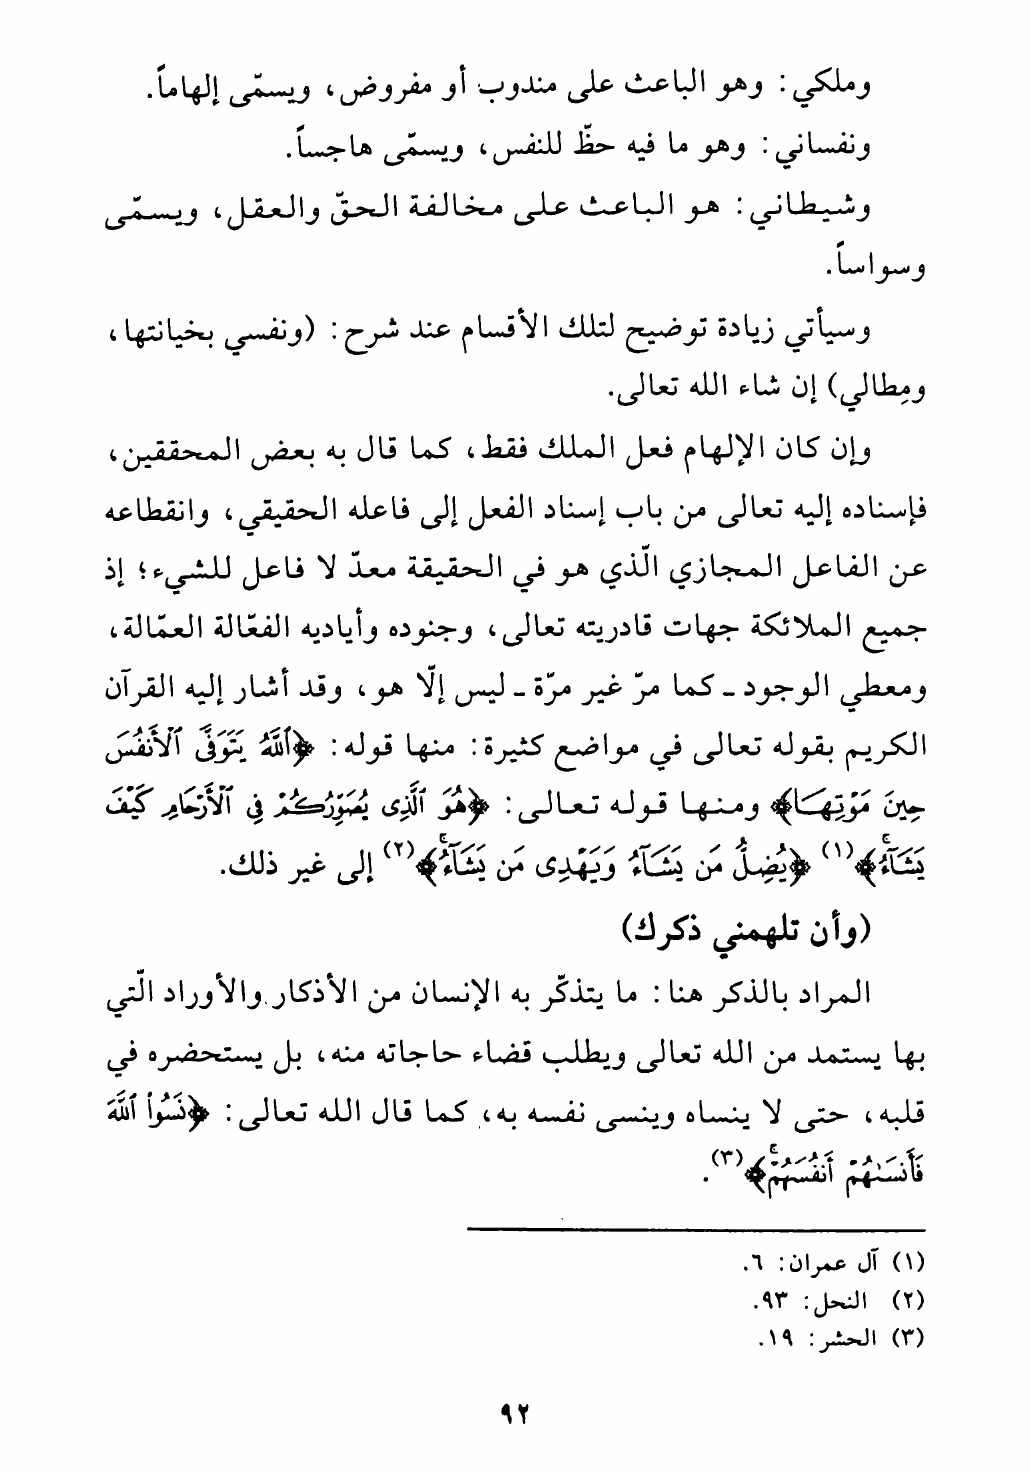 وملكي: وهو الباعث على مندوب أو مفروض، ويسمّى إلهاماً.
ونفساني: وهو ما فيه حظّ للنفس، ويسمّى هاجساً.
وشيطاني: هو الباعث على مخالفة الحقّ والعقل، ويسمّى
وسواساً.
وسيأتي زيادة توضيح لتلك الأقسام عند شرح: (ونفسي بخيانتها،
ومِطالي) إن شاء الله تعالى.
وإن كان الإلهام فعل الملك فقط، كما قال به بعض المحققين،
فإسناده إليه تعالى من باب إسناد الفعل إلى فاعله الحقيقي، وانقطاعه
عن الفاعل المجازي الّذي هو في الحقيقة معدّ لا فاعل للشيء؛ إذ
جميع الملائكة جهات قادريته تعالى، وجنوده وأياديه الفعّالة العمّالة،
ومعطي الوجود ـ كما مرّ غير مرّة ـ ليس إلّا هو، وقد أشار إليه القرآن
الكريم بقوله تعالى في مواضع كثيرة: منها قوله: ﴿ٱللَّهُ يَتَوَفَّى ٱلْأَنفُسَ
حِينَ مَوْتِهَا﴾ ومنها قوله تعالى: ﴿هُوَ ٱلَّذِى يُصَوِّرُكُمْ فِى ٱلْأَرْحَامِ كَيْفَ
يَشَآءُ ۚ﴾(١) ﴿يُضِلُّ مَن يَشَآءُ وَيَهْدِى مَن يَشَآءُ ۚ﴾(٢) إلى غير ذلك.
(وأن تلهمني ذكرك)
المراد بالذكر هنا: ما يتذكّر به الإنسان من الأذكار والأوراد الّتي
بها يستمد من الله تعالى ويطلب قضاء حاجاته منه، بل يستحضره في
قلبه، حتى لا ينساه وينسى نفسه به، كما قال الله تعالى: ﴿نَسُوا۟ ٱللَّهَ
فَأَنسَىٰهُمْ أَنفُسَهُمْ ۚ﴾(٣).
(١) آل عمران: ٦.
(٢) النحل: ٩٣.
(٣) الحشر: ١٩.
٩٢